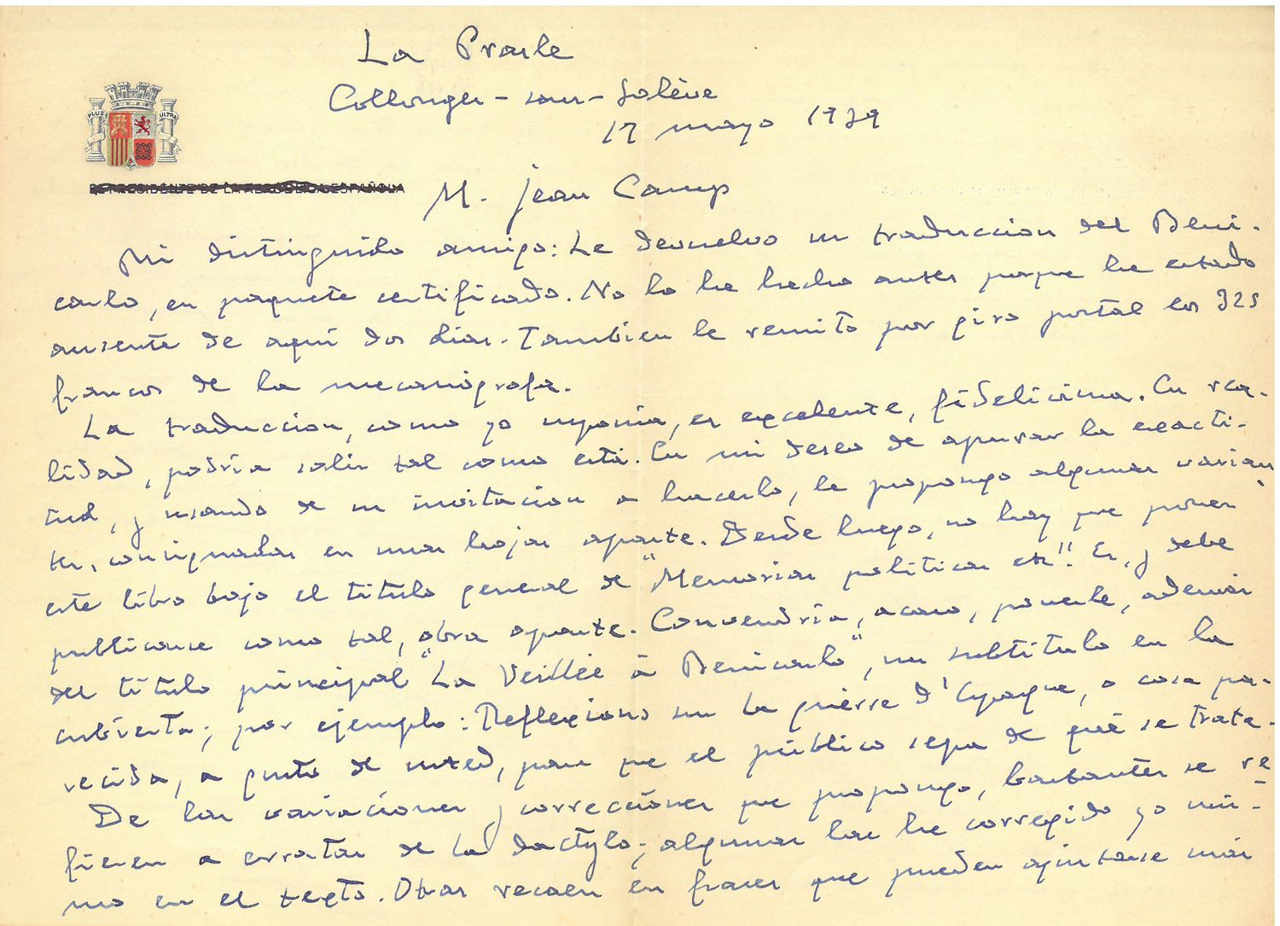 La Prasle
Collonges-sous-Salève
17 mayo 1939
PLUS ULTRA
EL PRESIDENTE DE LA REPUBLICA ESPAÑOLA
M. Jean Camp
Mi distinguido amigo: Le devuelvo su traduccion del Beni-
carlo, en paquete certificado. No lo he hecho antes porque he estado
ausente de aquí dos dias. Tambien le remito por giro postal los 325
francos de la mecanógrafa.
La traduccion, como yo suponia, es excelente, fidelisima. En rea-
lidad, podria salir tal como está. En mi deseo de apurar la exacti-
tud, y usando de su invitacion a hacerlo, le propongo algunas varian
tes, consignadas en unas hojas aparte. Desde luego, no hay que poner
este libro bajo el titulo general de "Memorias politicas etc". Es, y debe
publicarse como tal, obra aparte. Convendria, acaso, ponerle, ademas
del titulo principal "La Veillée à Benicarlo", un subtitulo en la
cubierta; por ejemplo: Reflexions sur la guerre d'Espagne, o cosa pa-
recida, a gusto de usted, para que el público sepa de qué se trata.
De las variaciones y correcciones que propongo, bastantes se re
fieren a erratas de la dactylo; algunas las he corregido yo mis-
mo en el texto. Otras recaen en frases que pueden ajustarse más